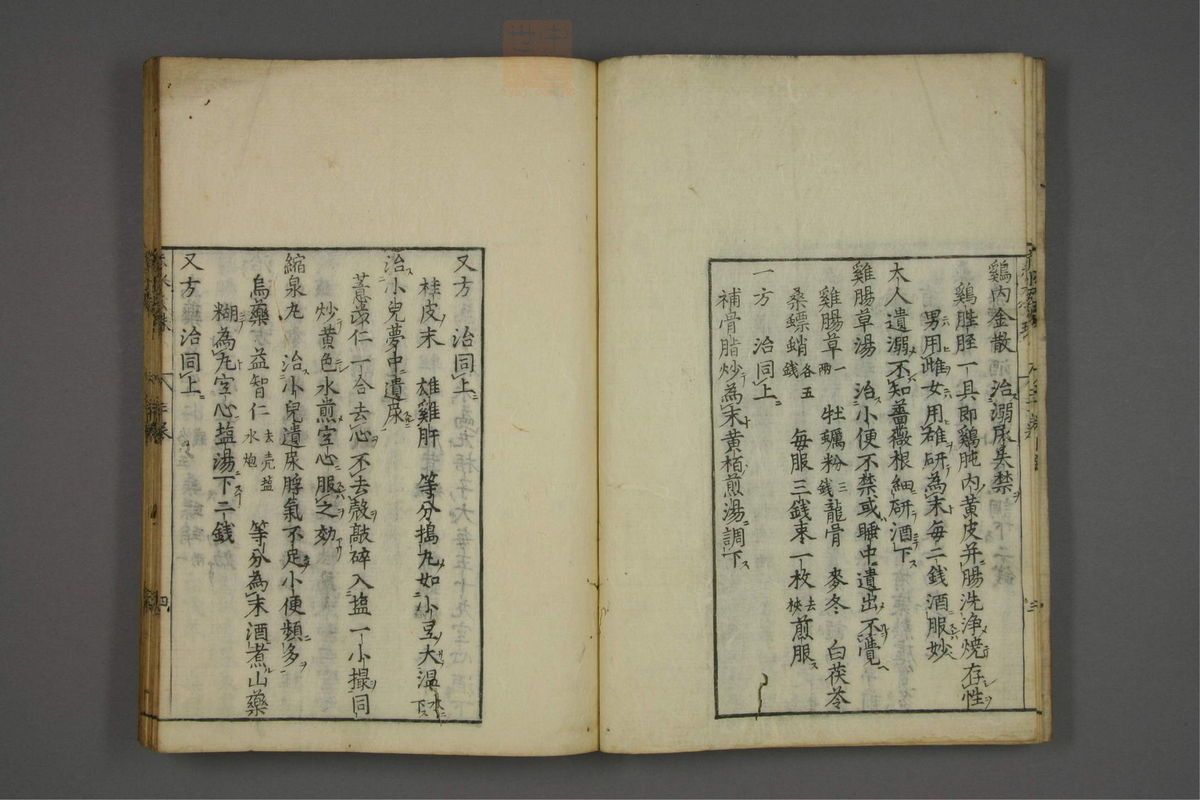 鷄内金散　治溺尿失禁
鷄膍胵一具即鷄肫内黄皮并腸洗浄燒存性
男用雌女用雄研為末毎二銭酒服妙
大人遺溺不知薔薇根細研酒下
雞腸草湯　治小便不禁或睡中遺出不覺
雞腸草一兩　牡蠣粉三銭　龍骨　麥冬　白茯苓
桑螵蛸各五銭　毎服三銭棗一枚去核煎服
一方　治同上
補骨脂炒為末黄栢煎湯調下
又方　治同上
桂皮末　雄雞肝　等分搗丸如小豆大温水下
治小兒夢中遺尿
薏苡仁一合去心不去殻敲碎入塩一小撮同
炒黄色水煎空心服之効
縮泉丸　治小兒遺尿脬氣不足小便頻多
烏藥　益智仁去壳塩水炮　等分為末酒煮山藥
糊為丸空心塩湯下二銭
又方　治同上